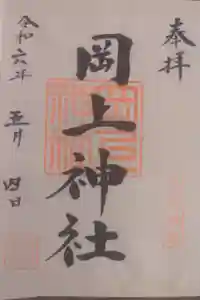 奉拝
岡上神社
令和六年
五月
四日